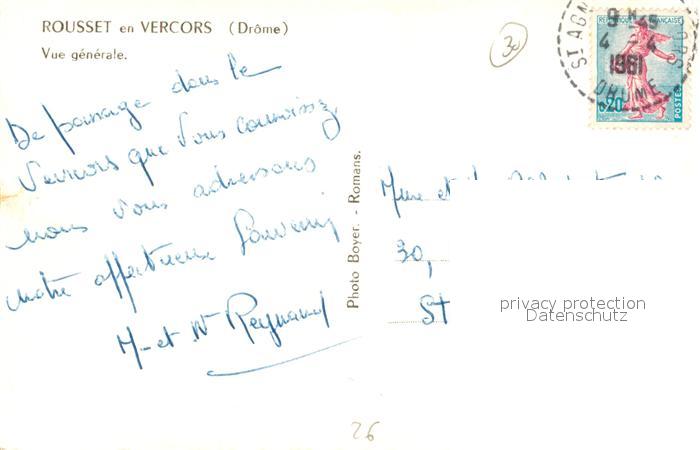 ROUSSET en VERCORS (Drôme)
Vue générale.
30
ST AGN
9 H 45
4 - 4
1961
DROME
REPUBLIQUE FRANÇAISE
0,20
POSTES
De passage dans le
Vercors que vous connaissez,
nous vous adressons
notre affectueux Souvenir
M- et Mr Reynaud
Photo Boyer. - Romans.
Mme et
30,
St
privacy protection
Datenschutz
26